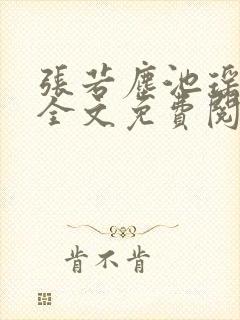 張若塵池瑤
全文免費閱
肯不肯